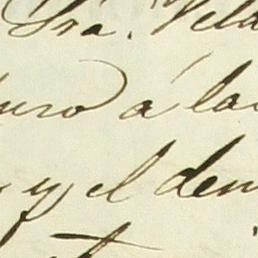 Sra. Vela
uro á la
y el dem